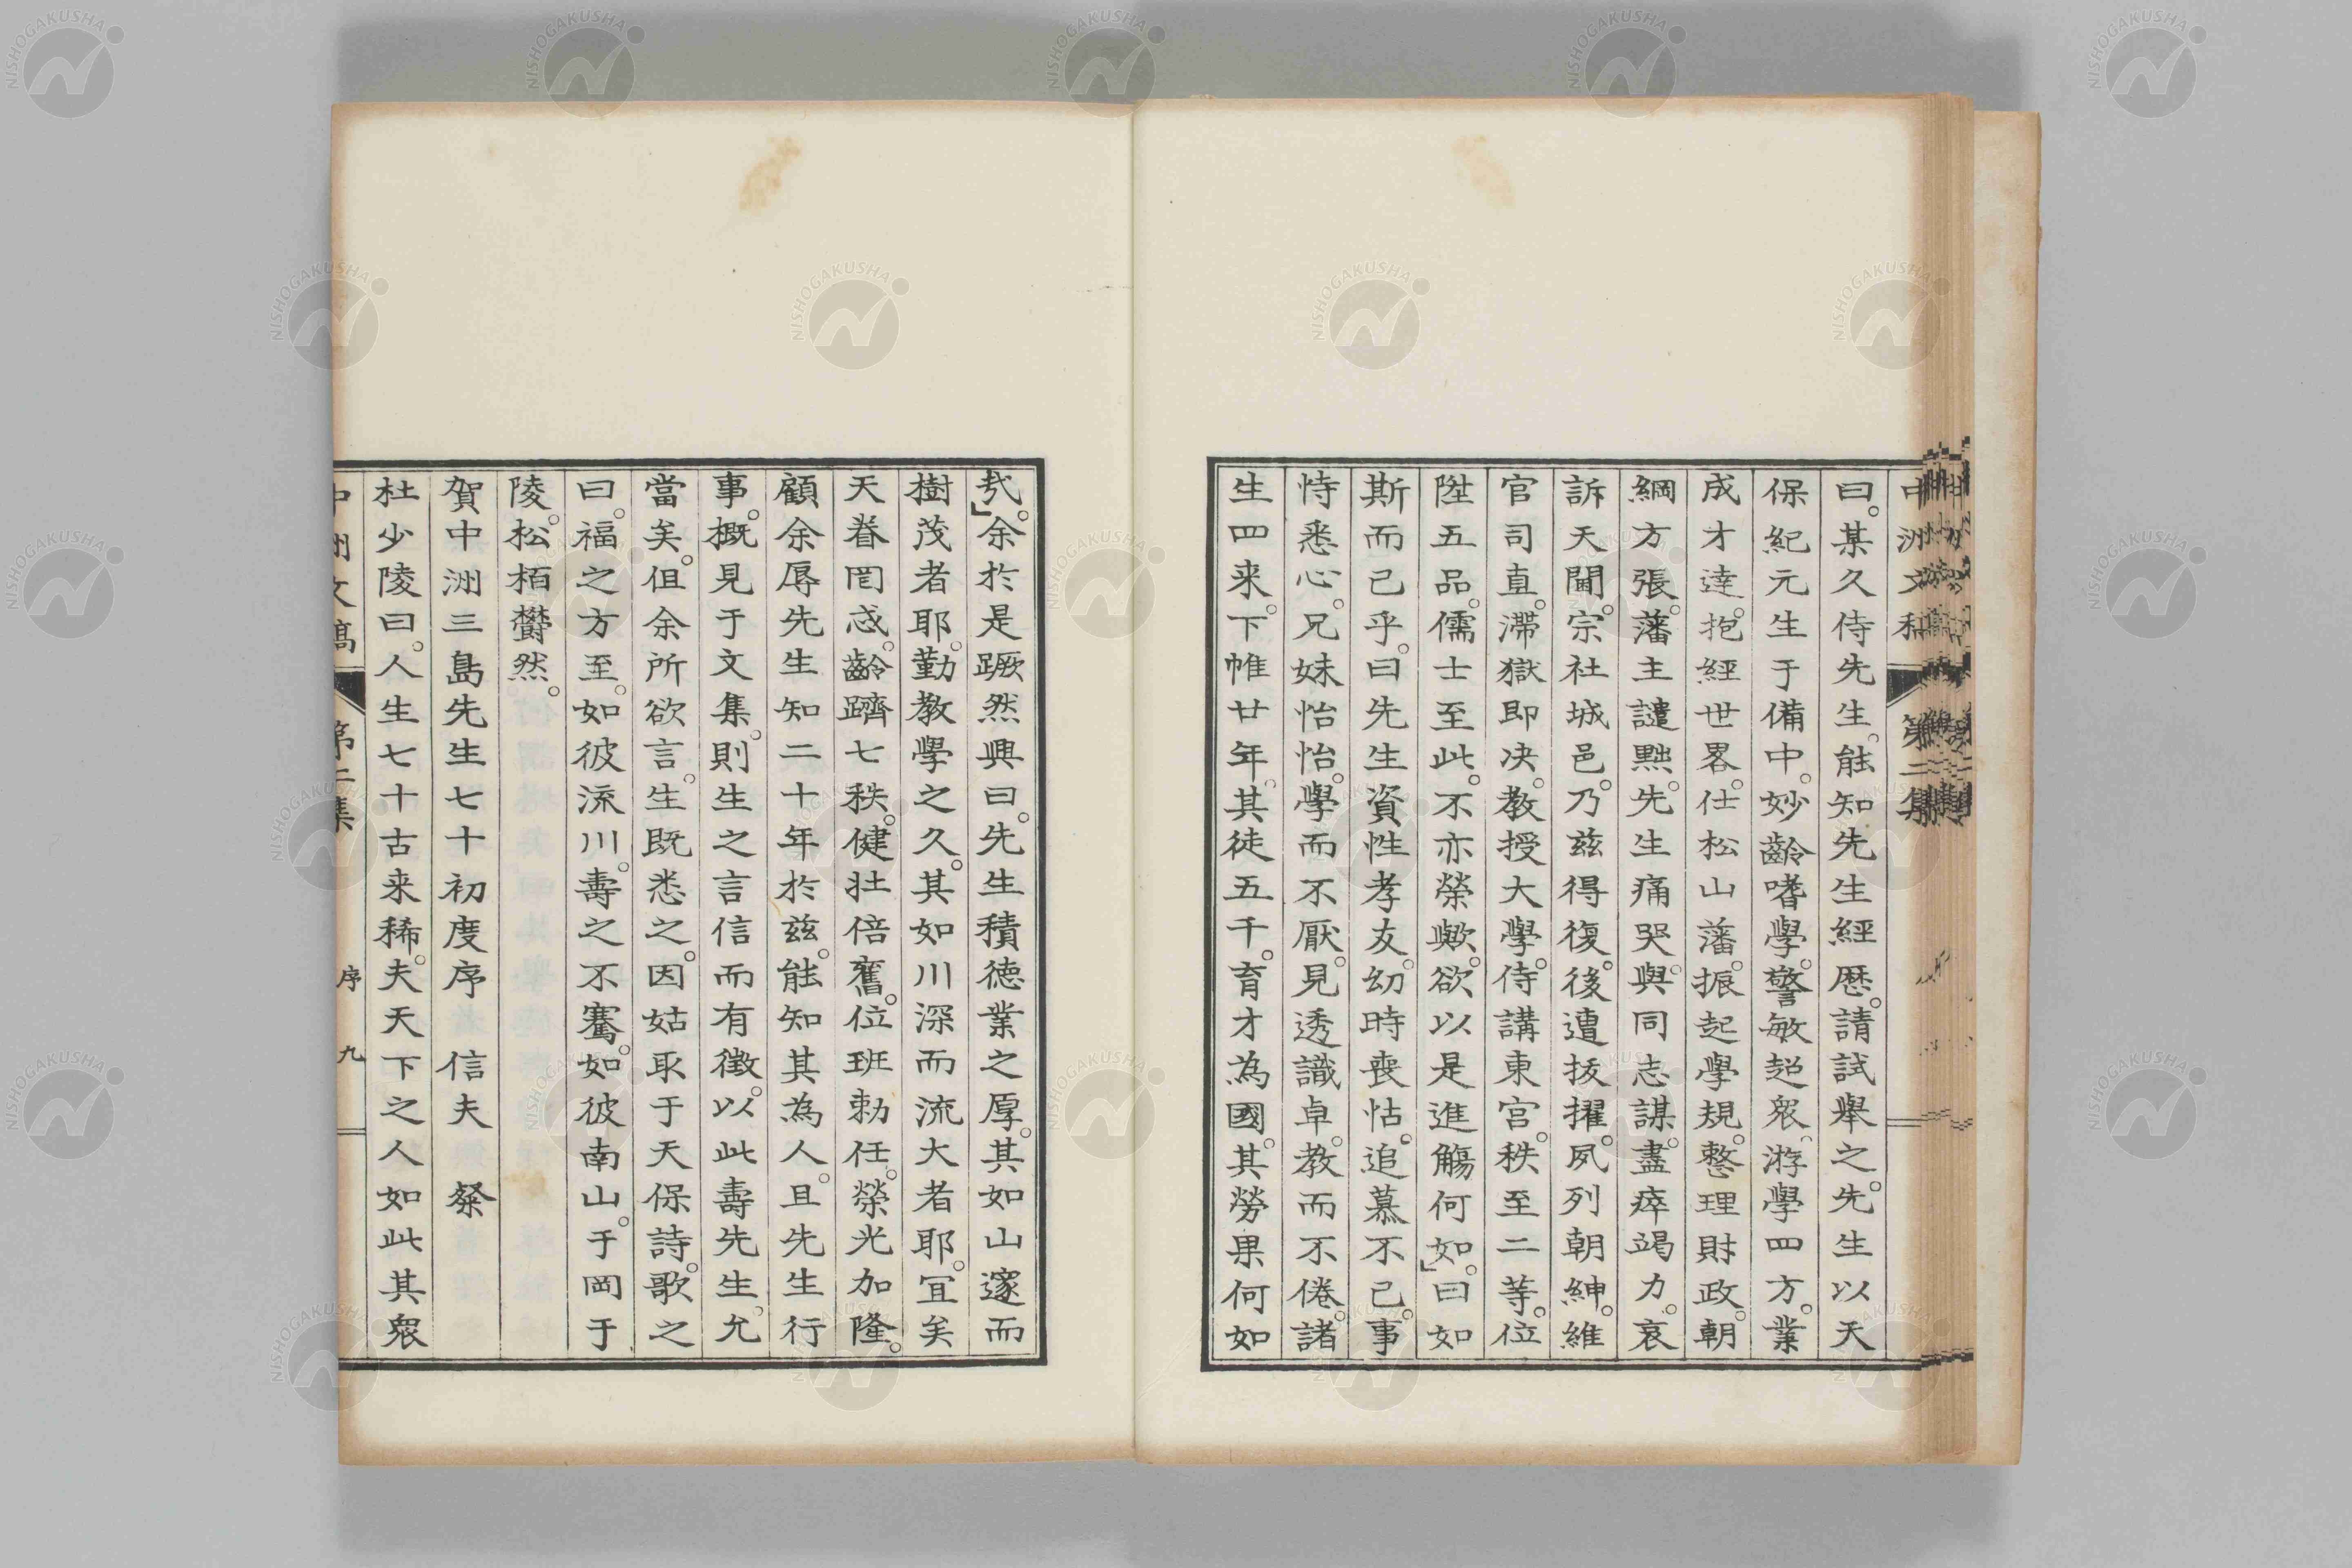 曰。某久侍先生。能知先生經歷。請試擧之。先生以天
保紀元生于備中。妙齡嗜學。警敏超衆。游學四方。業
成才達。抱經世畧。仕松山藩。振起學規。整理財政。朝
綱方張。藩主譴黜。先生痛哭。與同志謀。盡瘁竭力。哀
訴天閽。宗社城邑。乃玆得復。後遭拔擢。夙列朝紳。維
官司直。滯獄即决。教授大學。侍講東宮。秩至二等。位
陞五品。儒士至此。不亦榮歟。欲以是進觴何如。」曰如
斯而已乎。曰先生資性孝友。幼時喪怙。追慕不已。事
恃悉心。兄妹怡怡。學而不厭。見透識卓。教而不倦。諸
生四来。下帷廿年。其徒五千。育才為國。其勞果何如
哉。」余於是蹶然興曰。先生積徳業之厚。其如山邃而
樹茂者耶。勤教學之久。其如川深而流大者耶。宜矣
天眷罔忒。齡躋七秩。健壯倍舊。位班勅任。榮光加隆。
顧余辱先生知二十年於玆。能知其為人。且先生行
事。概見于文集。則生之言信而有徴。以此壽先生。允
當矣。但余所欲言。生既悉之。因姑取于天保詩。歌之
曰。福之方至。如彼流川。壽之不騫。如彼南山。于岡于
陵。松栢欝然。
賀中洲三島先生七十初度序 信夫 粲
杜少陵曰。人生七十古来稀。夫天下之人如此其衆
中洲文稿 第二集 序 九